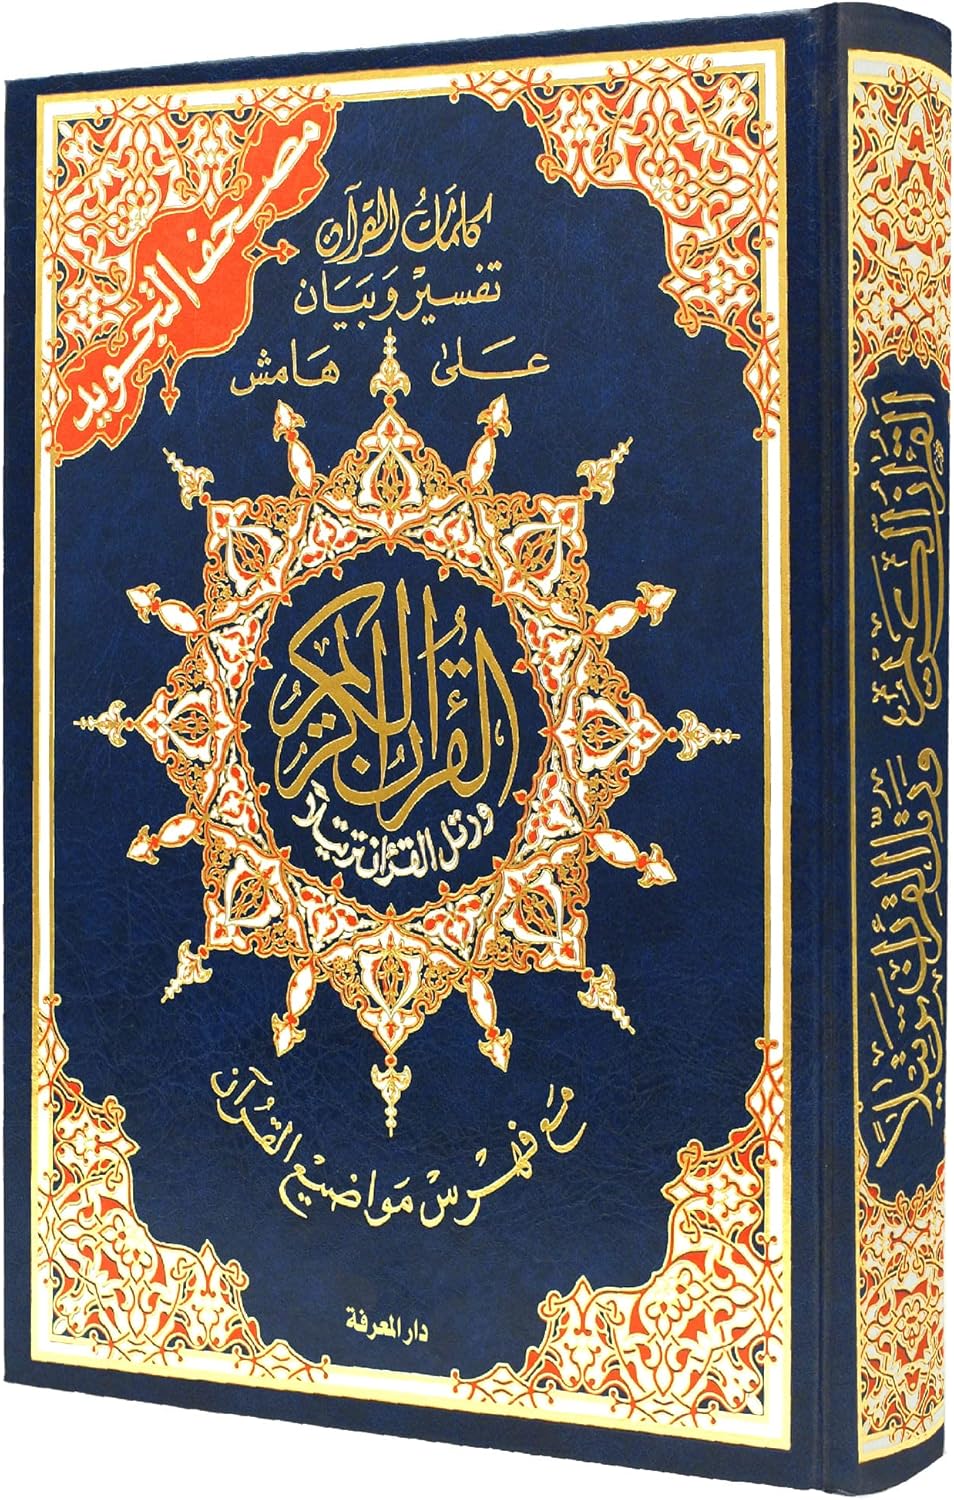 مصحف التجويد
كلمات القرآن
تفسير وبيان
على هامش
القرآن الكريم
ورتل القرءان ترتيلا
مع فهرس مواضيع القرآن
دار المعرفة
القرآن الكريم
ورتل القرءان ترتيلا